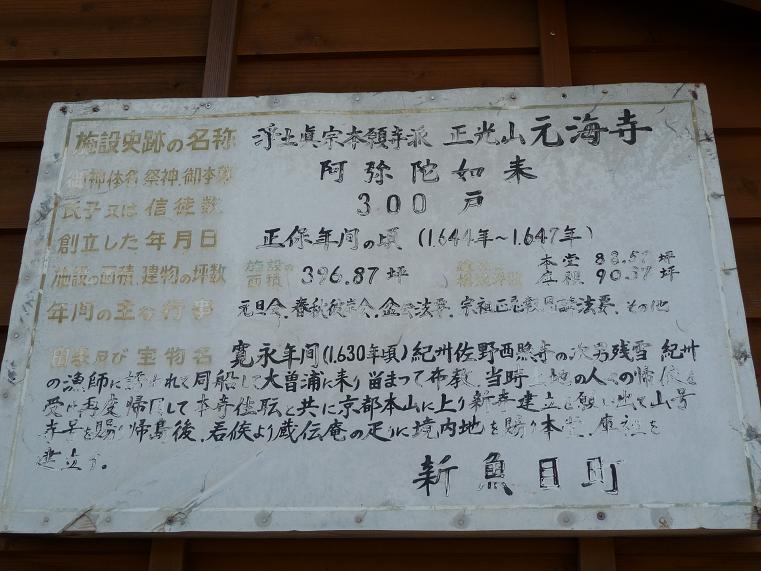 施設史跡の名称 浄土真宗本願寺派 正光山元海寺
御神体名.祭神.御本尊 阿弥陀如来
氏子又は信徒数 300 戸
創立した年月日 正保年间の頃 (1.644年~1.647年)
施設の面積.建物の坪数 施設の面積 396.87 坪 本堂 88.57 坪 庫裡 90.37 坪
年间の主な行事 元旦会.春秋彼岸会.金 法要.宗祖正忌報恩 法要.その他
及び 宝物名 寛永年间(1.630年頃)紀州佐野西照寺の次男残雪 紀州
の漁師に誘われて同船して大曽浦に来り留まって布教.当時 地の人々の帰依を
受け再度帰国して本寺住職と共に京都本山に上り新寺建立を願い出て山号
寺号を賜り帰島後.若侯より蔵伝庵の疋りに境内地を賜り本堂.庫裡を
建立す。
新魚目町